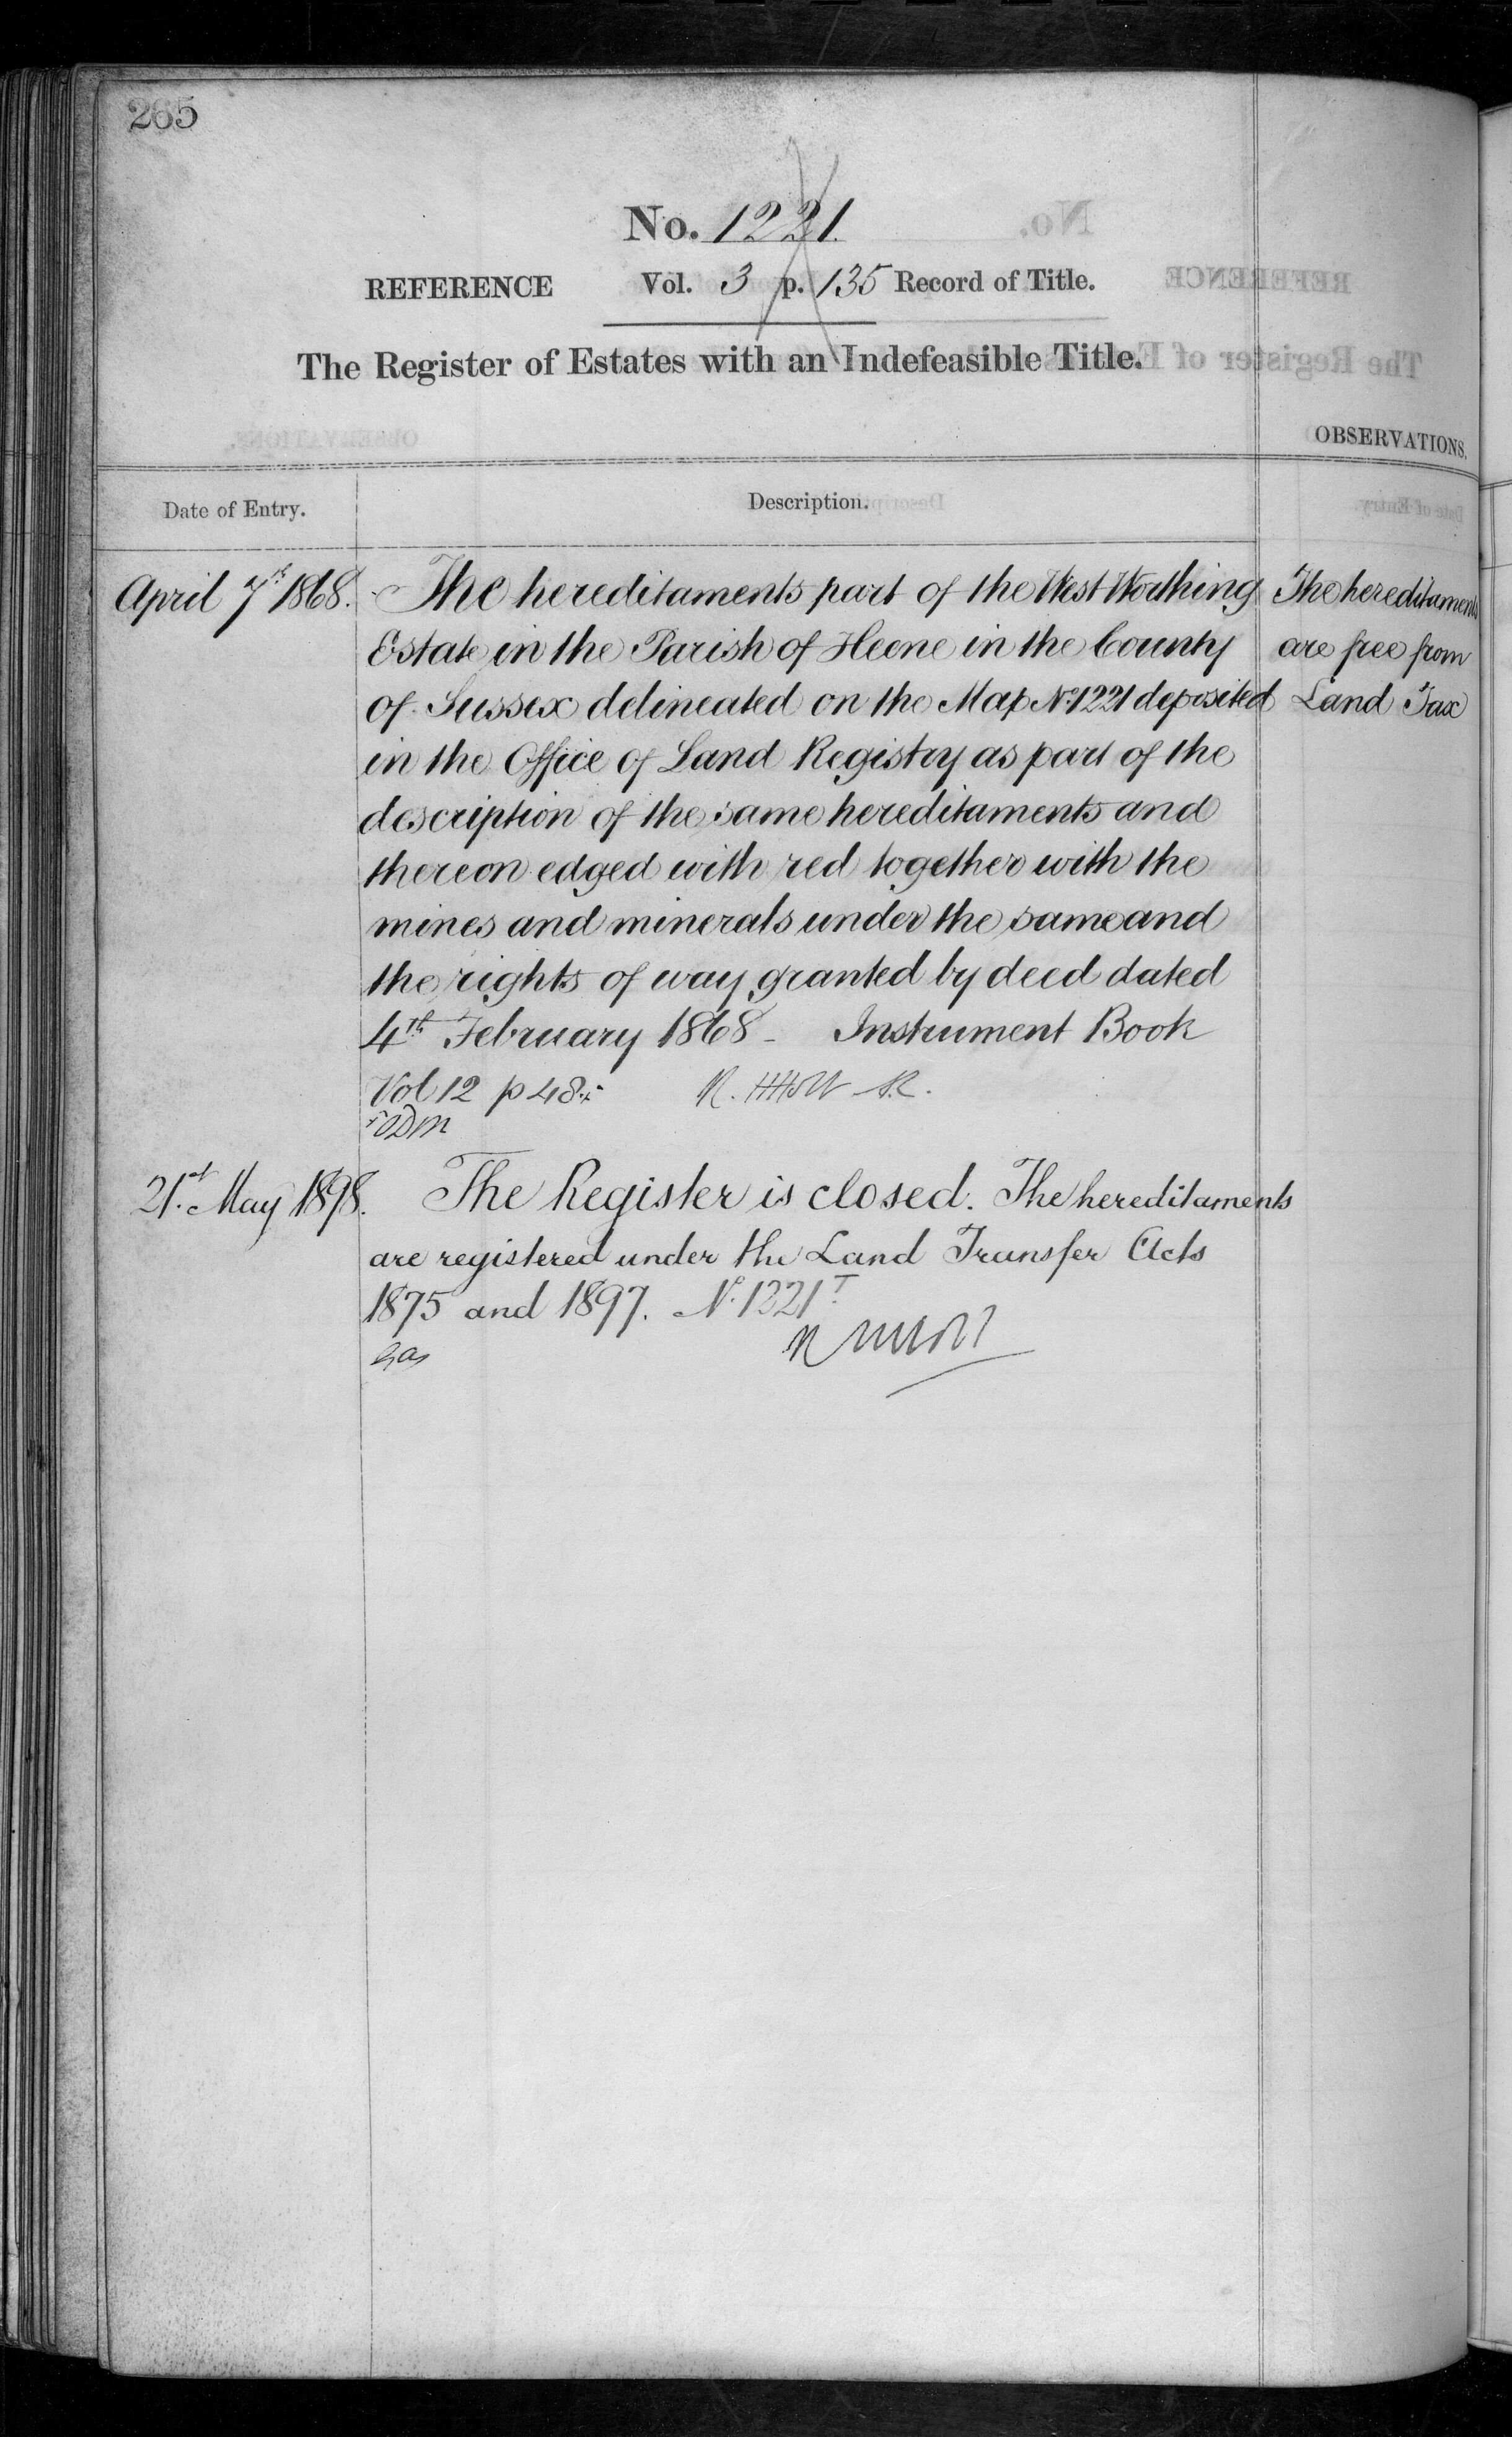 265
No. 1221.
REFERENCE Vol. 3 p. 135 Record of Title.
The Register of Estates with an Indefeasible Title.
OBSERVATIONS.
Date of Entry. Description.
April 7th 1868. The hereditaments part of the West Worthing
Estate in the Parish of Heene in the County
of Sussex delineated on the Map No 1221 deposited
in the Office of Land Registry as part of the
description of the same hereditaments and
thereon edged with red together with the
mines and minerals under the same and
the rights of way granted by deed dated
4th February 1868 - Instrument Book
Vol 12 p 48
The hereditaments
are free from
Land Tax
21st May 1898. The Register is closed. The hereditaments
are registered under the Land Transfer Acts
1875 and 1897. No. 1221T.